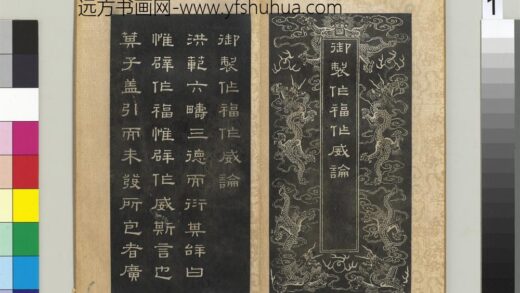 远方书画网-www.yfshuhua.com
1
御製作福作威論
御製作福作威論
洪範六疇三德而衍其辭曰
惟辟作福惟辟作威斯言也
箕子盖引而未發所包者廣